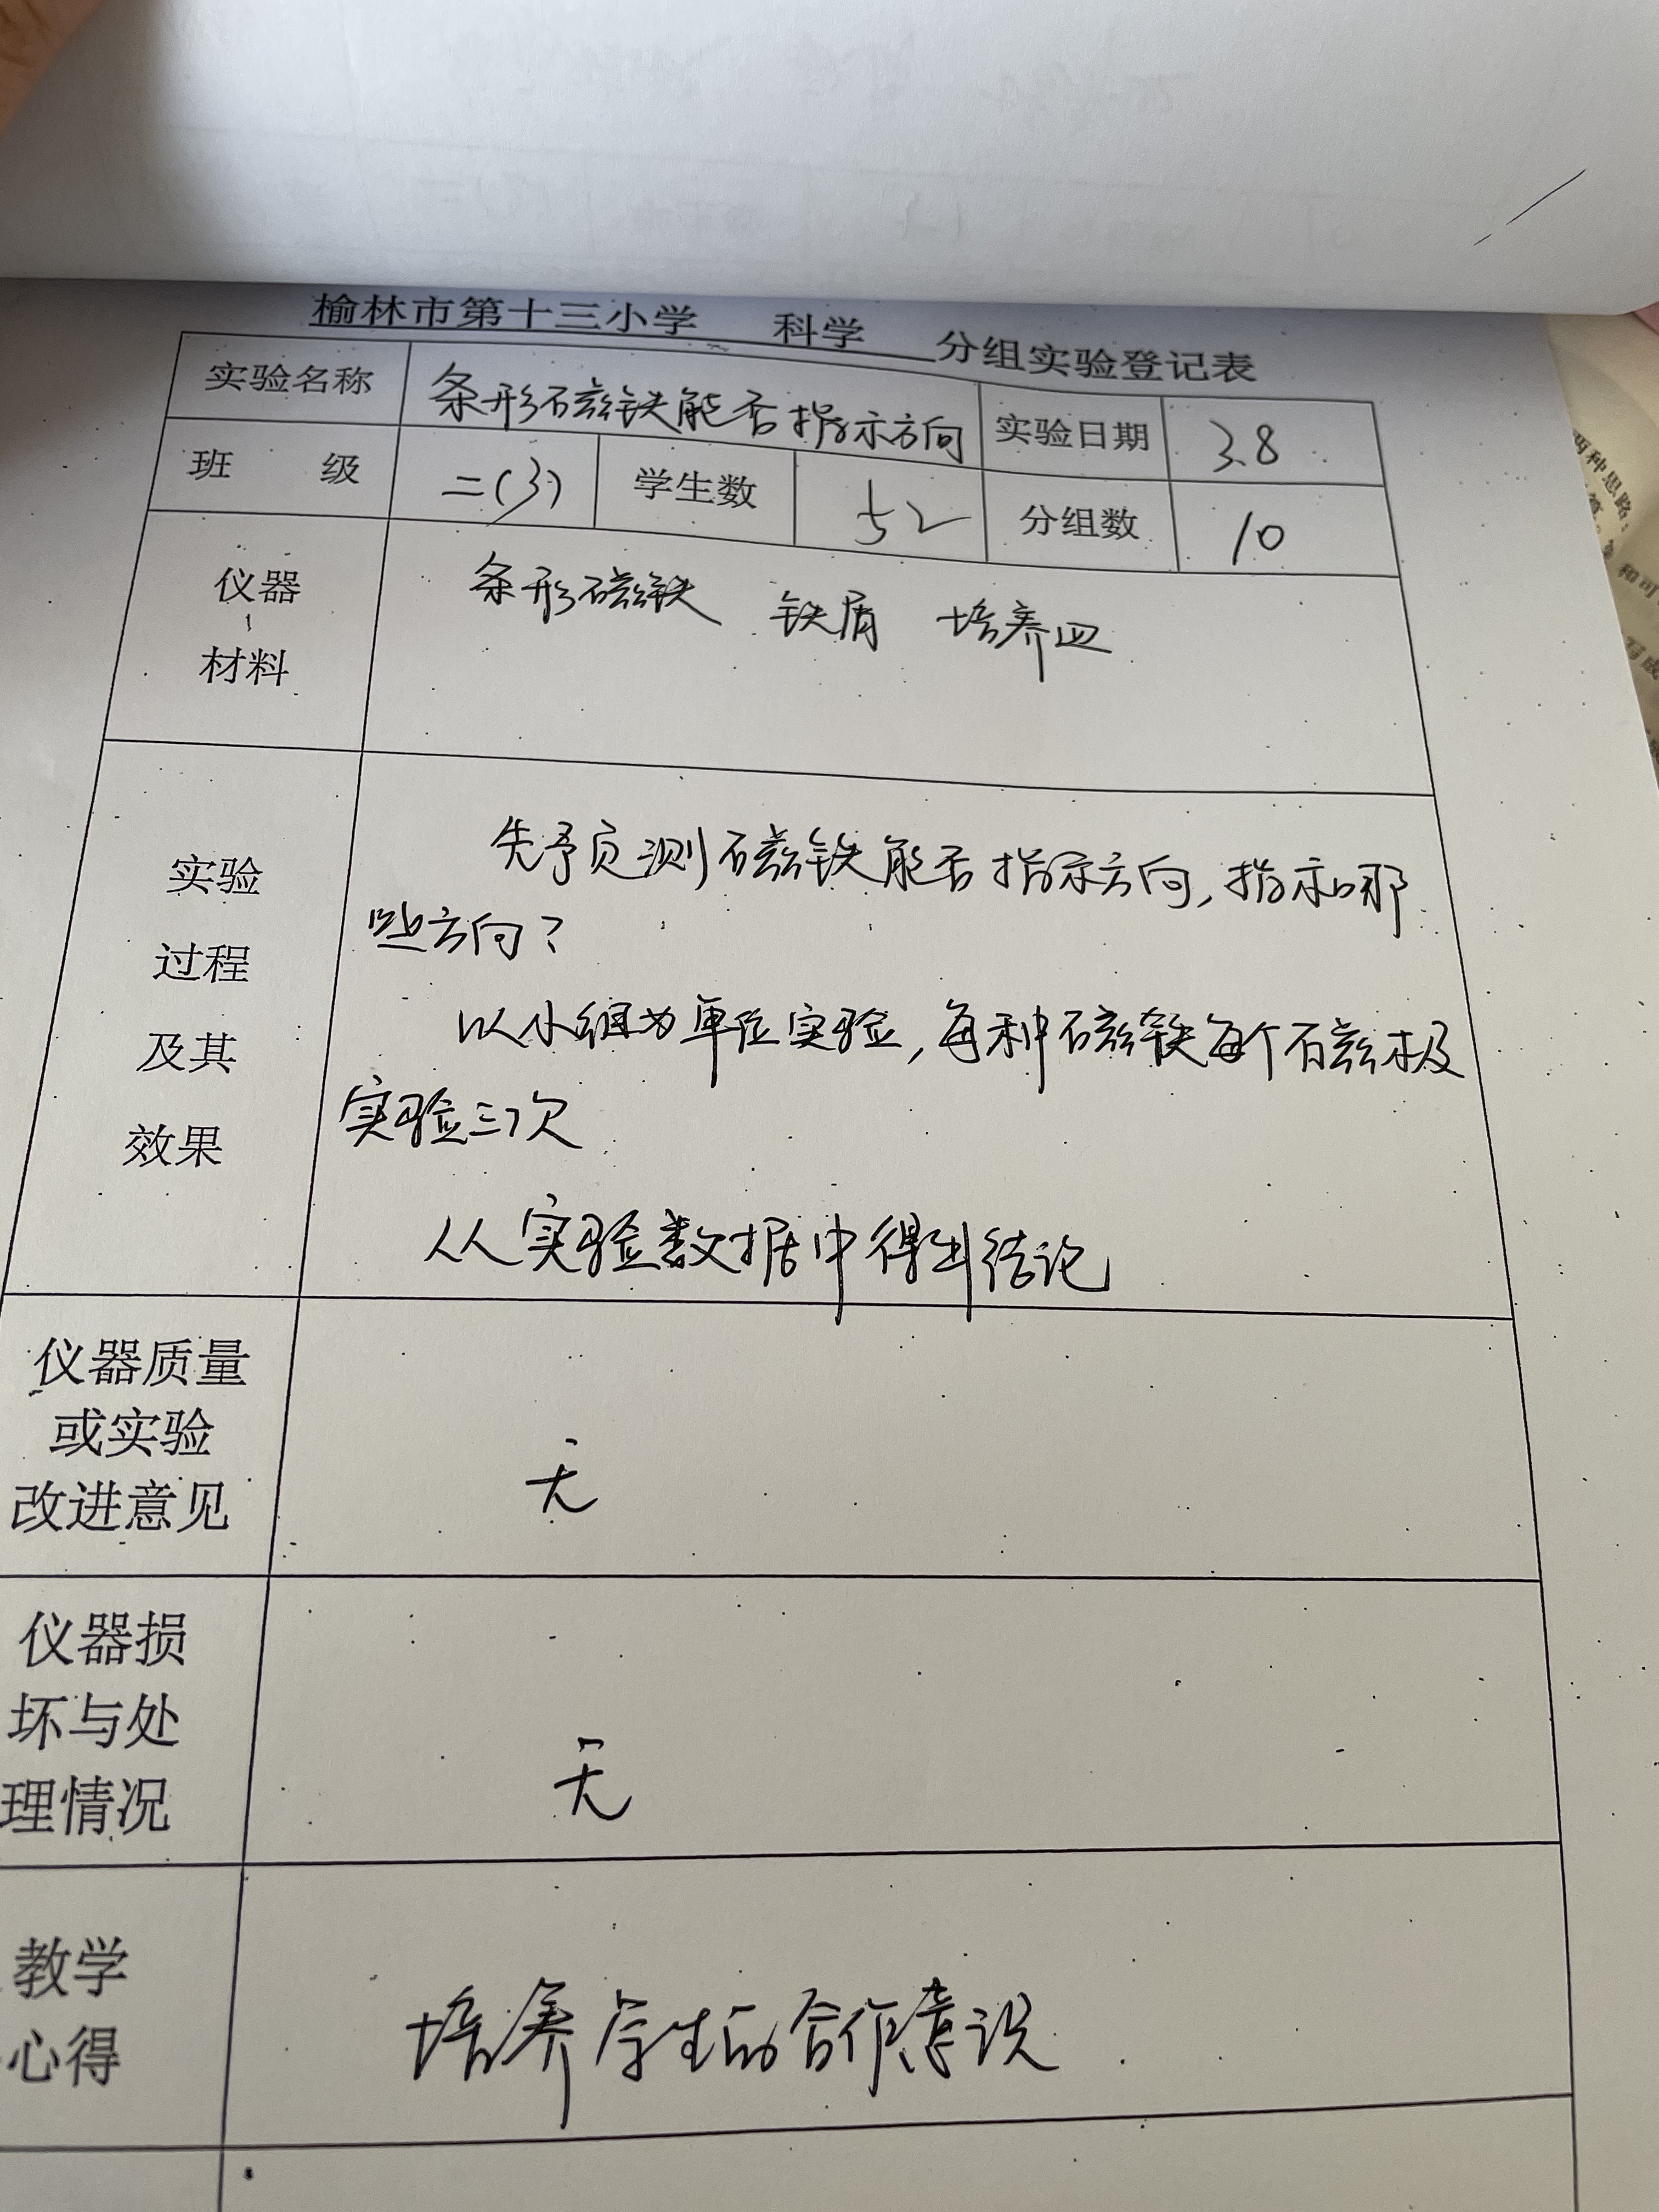 榆林市第十三小学 科学 分组实验登记表
实验名称 条形磁铁能否指示方向 实验日期 3.8
班 级 二(3) 学生数 52 分组数 10
仪器
材料
条形磁铁 铁屑 培养皿
实验
过程
及其
效果
先预测磁铁能否指示方向,指示哪
些方向?
以小组为单位实验,每种磁铁每个磁极
实验三次
从实验数据中得出结论
仪器质量
或实验
改进意见
无
仪器损
坏与处
理情况
无
教学
心得
培养学生的合作意识
两种思路:
和可
写成